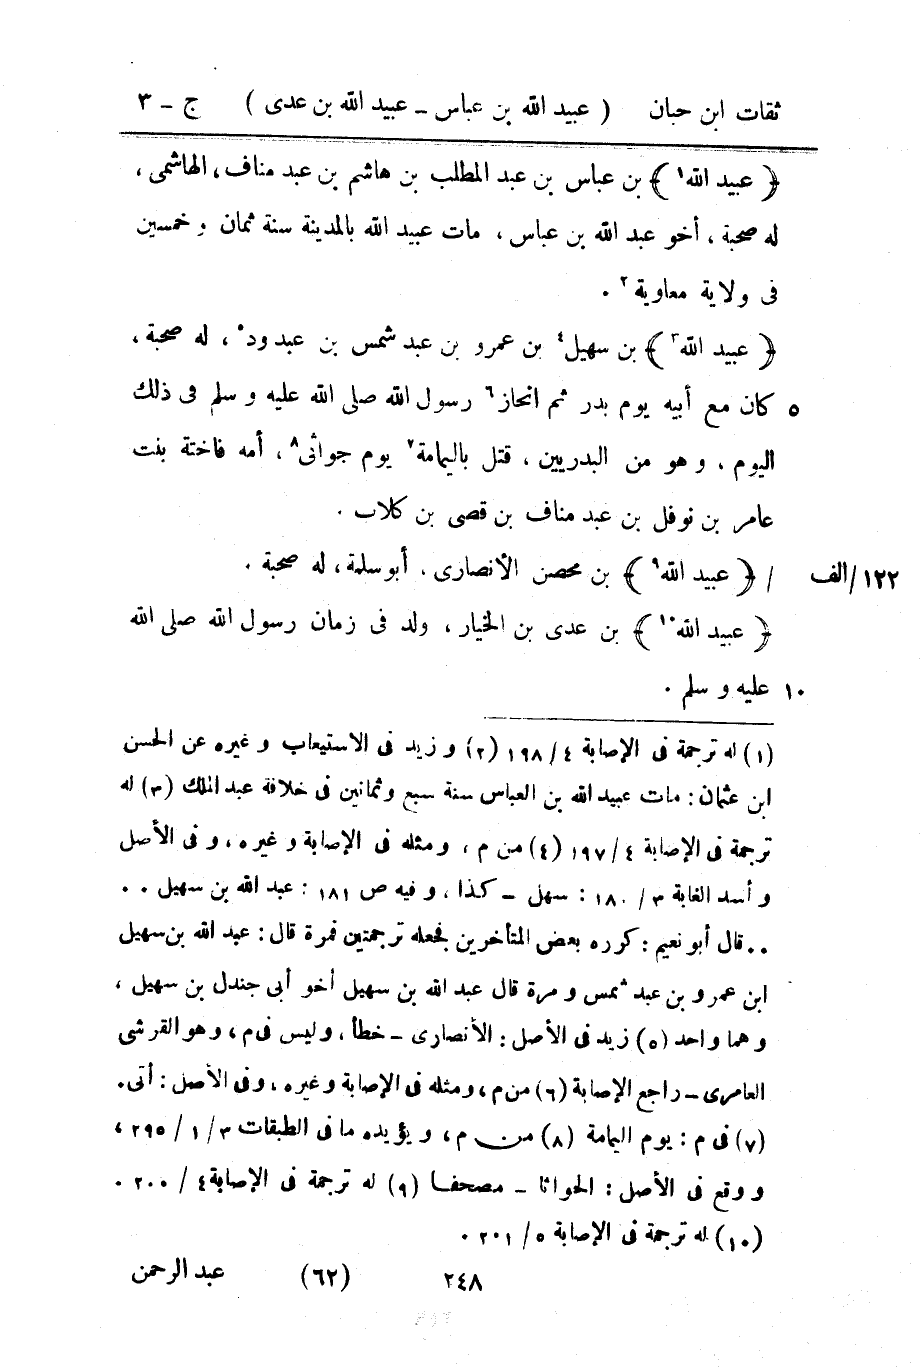 ثقات ابن حبان ( عبيد الله بن عباس ـ عبيد الله بن عدى ) ج ـ ٣
﴿ عبيد الله١ ﴾ بن عباس بن عبد المطلب بن هاشم بن عبد مناف، الهاشمى ،
له صحبة ، أخو عبد الله بن عباس ، مات عبيد الله بالمدينة سنة ثمان و خمسين
فى ولاية معاوية٢ .
﴿ عبيد الله٣ ﴾ بن سهيل٤ بن عمرو بن عبد شمس بن عبدود٥ ، له صحبة ،
٥ كان مع أبيه يوم بدر ثم انحاز٦ رسول الله صلى الله عليه و سلم فى ذلك
اليوم ، و هو من البدريين ، قتل باليمامة٧ يوم جواثى٨ ، أمه فاختة بنت
عامر بن نوفل بن عبد مناف بن قصى بن كلاب .
١٢٢/الف / ﴿ عبيد الله٩ ﴾ بن محصن الأنصارى ، أبو سلمة ، له صحبة .
﴿ عبيد الله١٠ ﴾ بن عدى بن الخيار ، ولد فى زمان رسول الله صلى الله
١٠ عليه و سلم .
(١) له ترجمة فى الإصابة ٤/ ١٩٨ (٢) و زيد فى الاستيعاب و غيره عن الحسن
ابن عثمان : مات عبيد الله بن العباس سنة سبع و ثمانين فى خلافة عبد الملك (٣) له
ترجمة فى الإصابة ٤/ ١٩٧ (٤) من م ، و مثله فى الإصابة و غيره ، و فى الأصل
و أسد الغابة ٣/ ١٨٠ : سهل ـ كذا ، و فيه ص ١٨١ : عبد الله بن سهيل . .
. . قال أبو نعيم : كرره بعض المتأخرين فجعله ترجمتين فمرة قال : عبد الله بن سهيل
ابن عمرو بن عبد شمس و مرة قال عبد الله بن سهيل أخو أبى جندل بن سهيل ،
و هما واحد (٥) زيد فى الأصل : الأنصارى ـ خطأ ، و ليس فى م ، و هو القرشى
العامرى ـ راجع الإصابة (٦) من م ، و مثله فى الإصابة و غيره ، و فى الأصل : أتى .
(٧) فى م : يوم اليمامة (٨) من م ، و يؤيده ما فى الطبقات ٣/ ١/ ٢٩٥ ،
و وقع فى الأصل : الحواثا ـ مصحفا (٩) له ترجمة فى الإصابة ٤/ ٢٠٠ .
(١٠) له ترجمة فى الإصابة ٥/ ٢٠١ .
٢٤٨ (٦٢) عبد الرحمن